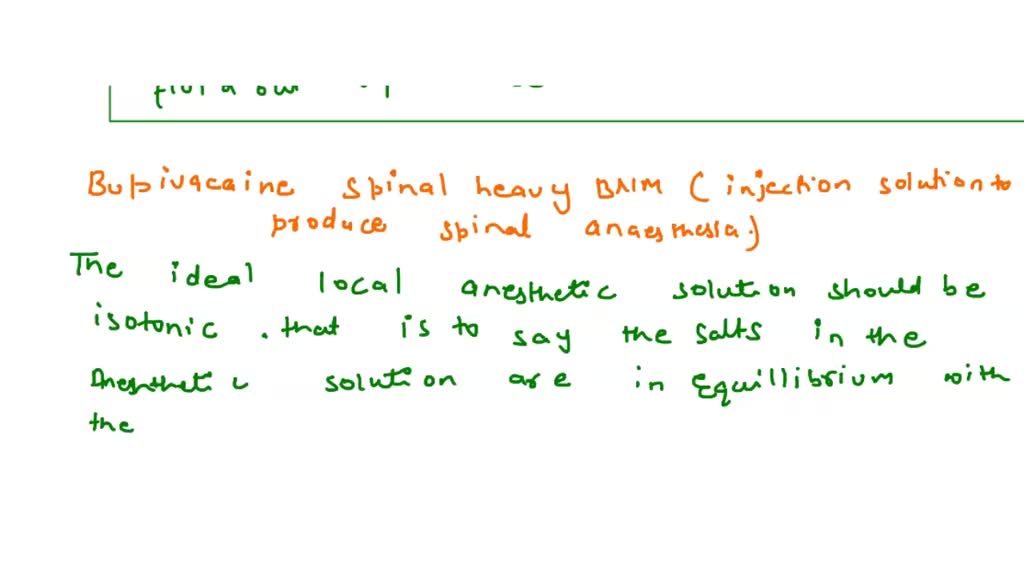 Bupivacaine spinal heavy BNM (injection solution to
produce spinal anaesthesia.)
The ideal local anesthetic solution should be
isotonic. that is to say the salts in the
Anesthetic solution are in equillibrium with
the